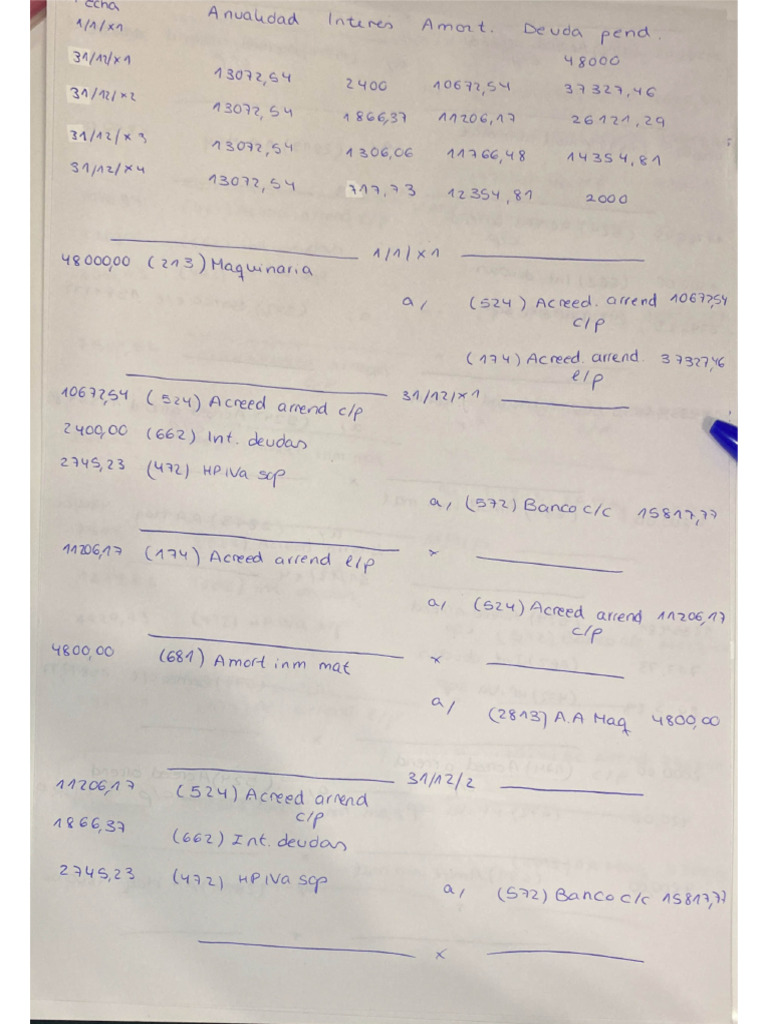 echa Anualidad Interes Amort. Deuda pend.
1/1/x1 48000
31/12/x1 13072,54 2400 10672,54 37327,46
31/12/x2 13072,54 1866,37 11206,17 26121,29
31/12/x3 13072,54 1306,06 11766,48 14354,81
31/12/x4 13072,54 717,73 12354,81 2000
1/1/x1
48000,00 (213) Maquinaria
a, (524) Acreed. arrend 10672,54
c/p
(174) Acreed. arrend. 37327,46
l/p
31/12/x1
10672,54 (524) Acreed arrend c/p
2400,00 (662) Int. deudas
2745,23 (472) HP iva sop
a, (572) Banco c/c 15817,77
x
11206,17 (174) Acreed arrend l/p
a, (524) Acreed arrend 11206,17
c/p
x
4800,00 (681) Amort inm mat
a, (2813) A.A Maq 4800,00
31/12/2
11206,17 (524) Acreed arrend
c/p
1866,37 (662) Int. deudas
2745,23 (472) HP iva sop
a, (572) Banco c/c 15817,77
x